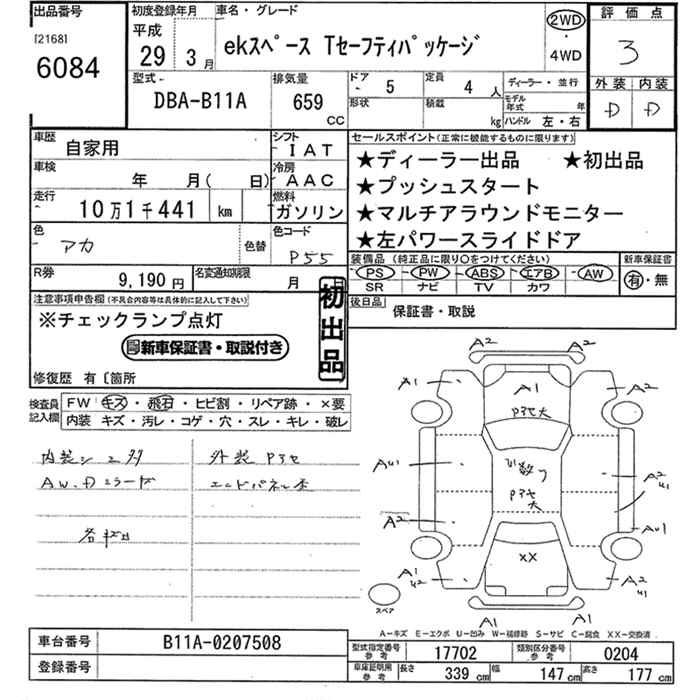 出品番号
[2168]
6084
初度登録年月
平成
29 3月
車名・グレード
ekスペース Tセーフティパッケージ
2WD
・
4WD
評価点
3
外装 内装
D D
型式
DBA-B11A
排気量
659
CC
ドア
5
定員
4 人
形状
積載
kg
ディーラー・並行
モデル年式 年
ハンドル 左・右
車歴
自家用
シフト
I AT
車検
年 月( 日)
冷房
AAC
走行
10万1千441 km
燃料
ガソリン
色
アカ
色替
色コード
P55
R券
9,190 円
名変通知期限
月 日
セールスポイント(正常に機能するものに限ります)
★ディーラー出品 ★初出品
★プッシュスタート
★マルチアラウンドモニター
★左パワースライドドア
装備品(純正品に限り○をつけてください)
PS PW ABS エアB AW
SR ナビ TV カワ
新車保証書
有・無
後日品
保証書・取説
注意事項申告欄(不具合内容等は具体的に記入して下さい)
※チェックランプ点灯
新車保証書・取説付き
初出品
修復歴 有〔箇所
検査員記入欄
FW キズ・飛石・ヒビ割・リペア跡・×要
内装 キズ・汚レ・コゲ・穴・スレ・キレ・破レ
外装
A2 A2
A1 A1 A2
AU1
A2
U1
A2
AU1
XX
A1
U2
A2
U1
スペア
A1 A1
A−キズ E−エクボ U−凹み W−補修跡 S−サビ C−腐食 XX−交換済
車台番号
B11A-0207508
登録番号
型式指定番号
参考
17702
類別区分番号
参考
0204
車庫証明用
参考
長さ 339 cm 幅 147 cm 高さ 177 cm